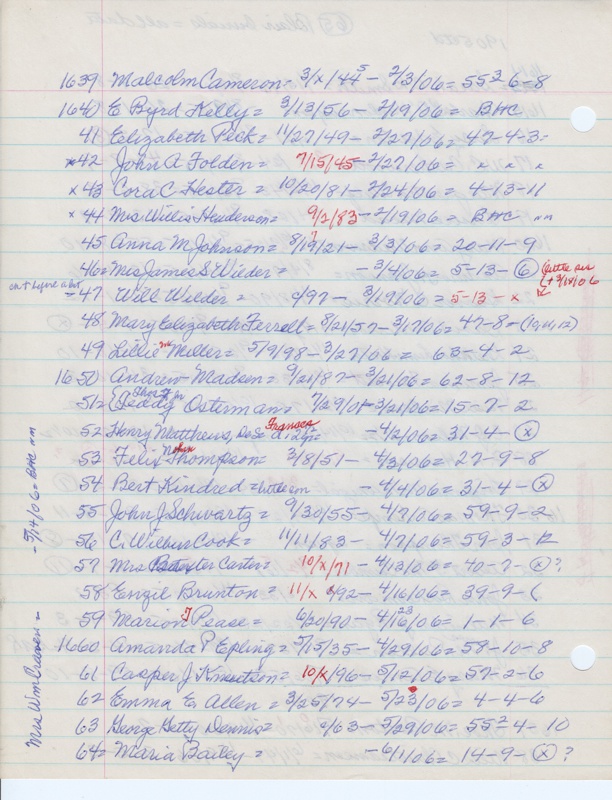 1639 Malcolm Cameron - 3/x/44 5 - 2/3/06 = 55 2 6-8
1640 E Byrd Kelly = 3/13/56 - 2/19/06 = BHC
41 Elizabeth Peck = 11/27/49 - 2/27/06 = 47-4-3
x42 John A Folden = 7/15/45 - 2/27/06 = x x x
x43 Cora C. Hester = 10/20/81 - 2/24/06 = 4-13-11
x44 Mrs Willis Henderson = 9/2/83 - 2/19/06 = BHC nm
45 Anna M Johnson = 8/19/21 - 3/3/06 = 20-11-9
46 = Mrs James S Wieder = - 3/4/06 = 5-13-6
= 47 Will Wilder = 0/97 - 3/19/06 = 5-13-x
48 Mary Elizabeth Ferrell = 8/21/57 - 3/17/06 = 47-8-(10,11,12)
49 Lillie Miller = 5/9/98 - 3/27/06 = 63-4-2
1650 Andrew Madsen = 9/21/87 - 3/21/06 = 62-8-12
51 = (Teddy Osterman = 7/29/01 - 3/21/06 = 15-7-2
52 Henry Matthews, - 4/2/06 = 31-4-x
53 Felix Thompson = 3/8/51 - 4/3/06 = 27-9-8
54 Bert Kindred = - 4/4/06 = 31-4-x
55 John J Schwartz = 9/30/55 - 4/7/06 = 59-9-2
56 C. Wilbur Cook = 11/11/83 - 4/7/06 = 59-3-12
57 Mrs Carter = 10/x/71 - 4/13/06 = 40-7-x?
58 Engil Brunton = 11/x 92 - 4/16/06 = 39-9-(
59 Marion J Pease = 6/20/90 - 4/16 23/06 = 1-1-6
1660 Amanda P Epling = 5/15/35 - 4/29/06 = 58-10-8
61 Casper J Knutson = 10/x/96 - 5/12/06 = 57-2-6
62 Emma E. Allen = 3/25/74 - 5/23/06 = 4-4-6
63 George Getty Dennis = 0/63 - 5/29/06 = 55 2 4-10
64 = Maria Bailey = - 6/1/06 = 14-9-x ?
Mrs Wm Craven = - 5/14/06 = BHC nm